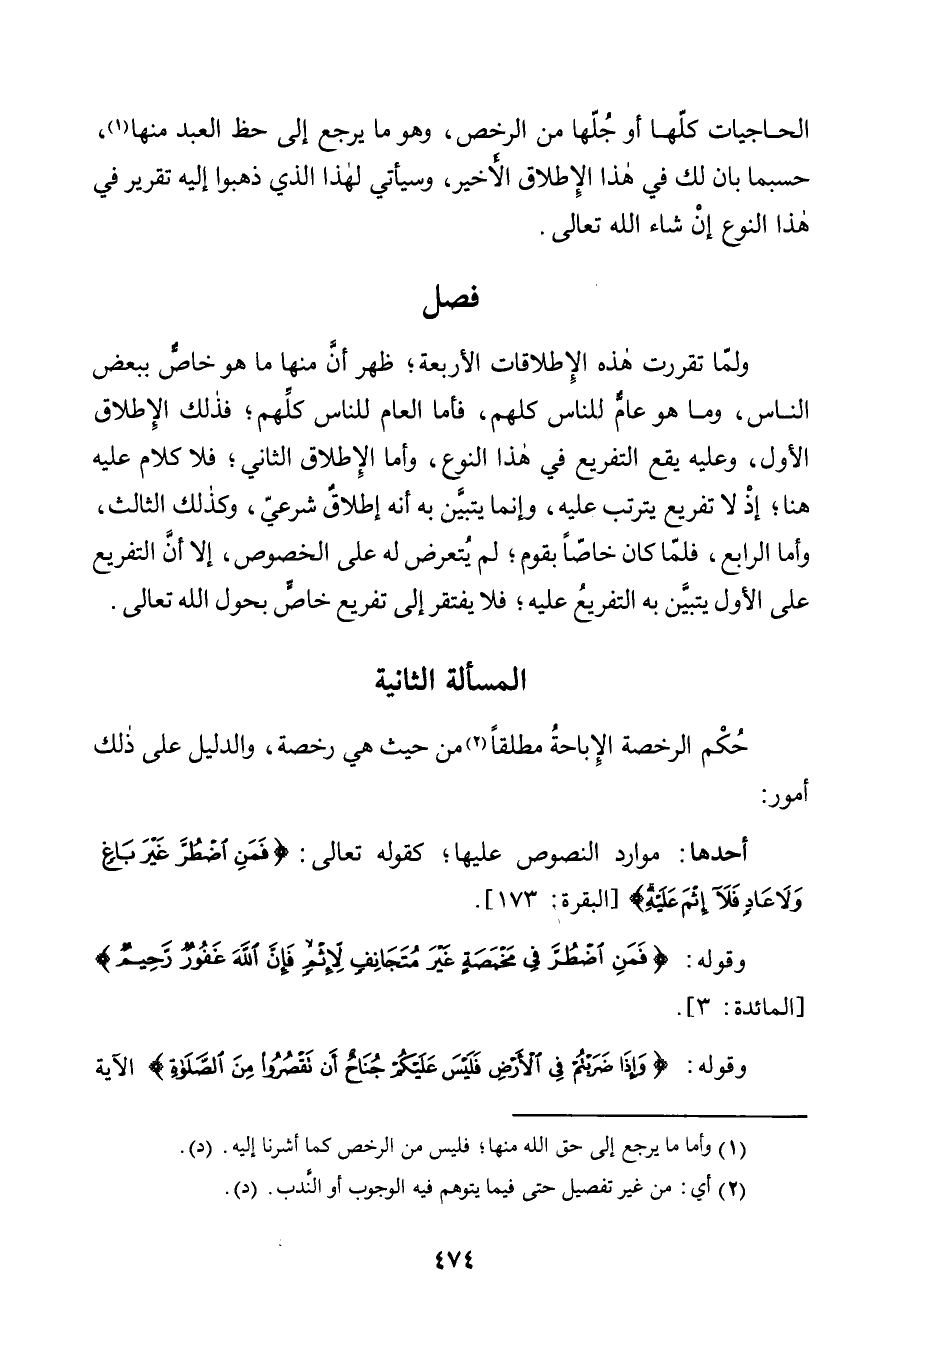 الحاجيات كلّها أو جُلّها من الرخص، وهو ما يرجع إلى حظ العبد منها(١)،
حسبما بان لك في هٰذا الإِطلاق الأَخير، وسيأتي لهٰذا الذي ذهبوا إليه تقرير في
هٰذا النوع إنْ شاء الله تعالى.
فصل
ولمّا تقررت هٰذه الإِطلاقات الأربعة؛ ظهر أنَّ منها ما هو خاصٌّ ببعض
الناس، وما هو عامٌّ للناس كلهم، فأما العام للناس كلِّهم؛ فذٰلك الإِطلاق
الأول، وعليه يقع التفريع في هٰذا النوع، وأما الإِطلاق الثاني؛ فلا كلام عليه
هنا؛ إذْ لا تفريع يترتب عليه، وإنما يتبيَّن به أنه إطلاقٌ شرعيّ، وكذٰلك الثالث،
وأما الرابع، فلمّا كان خاصّاً بقوم؛ لم يُتعرض له على الخصوص، إلا أنَّ التفريع
على الأول يتبيَّن به التفريعُ عليه؛ فلا يفتقر إلى تفريع خاصٍّ بحول الله تعالى.
المسألة الثانية
حُكْم الرخصة الإِباحةُ مطلقاً(٢) من حيث هي رخصة، والدليل على ذٰلك
أمور:
أحدها: موارد النصوص عليها؛ كقوله تعالى: ﴿فَمَنِ ٱضْطُرَّ غَيْرَ بَاغٍ
وَلَا عَادٍ فَلَآ إِثْمَ عَلَيْهِ﴾ [البقرة: ١٧٣].
وقوله: ﴿فَمَنِ ٱضْطُرَّ فِى مَخْمَصَةٍ غَيْرَ مُتَجَانِفٍ لِّإِثْمٍ فَإِنَّ ٱللَّهَ غَفُورٌ رَّحِيمٌ﴾
[المائدة: ٣].
وقوله: ﴿وَإِذَا ضَرَبْتُمْ فِى ٱلْأَرْضِ فَلَيْسَ عَلَيْكُمْ جُنَاحٌ أَن تَقْصُرُوا۟ مِنَ ٱلصَّلَوٰةِ﴾ الآية
(١) وأما ما يرجع إلى حق الله منها؛ فليس من الرخص كما أشرنا إليه. (د).
(٢) أي: من غير تفصيل حتى فيما يتوهم فيه الوجوب أو النَّدب. (د).
٤٧٤